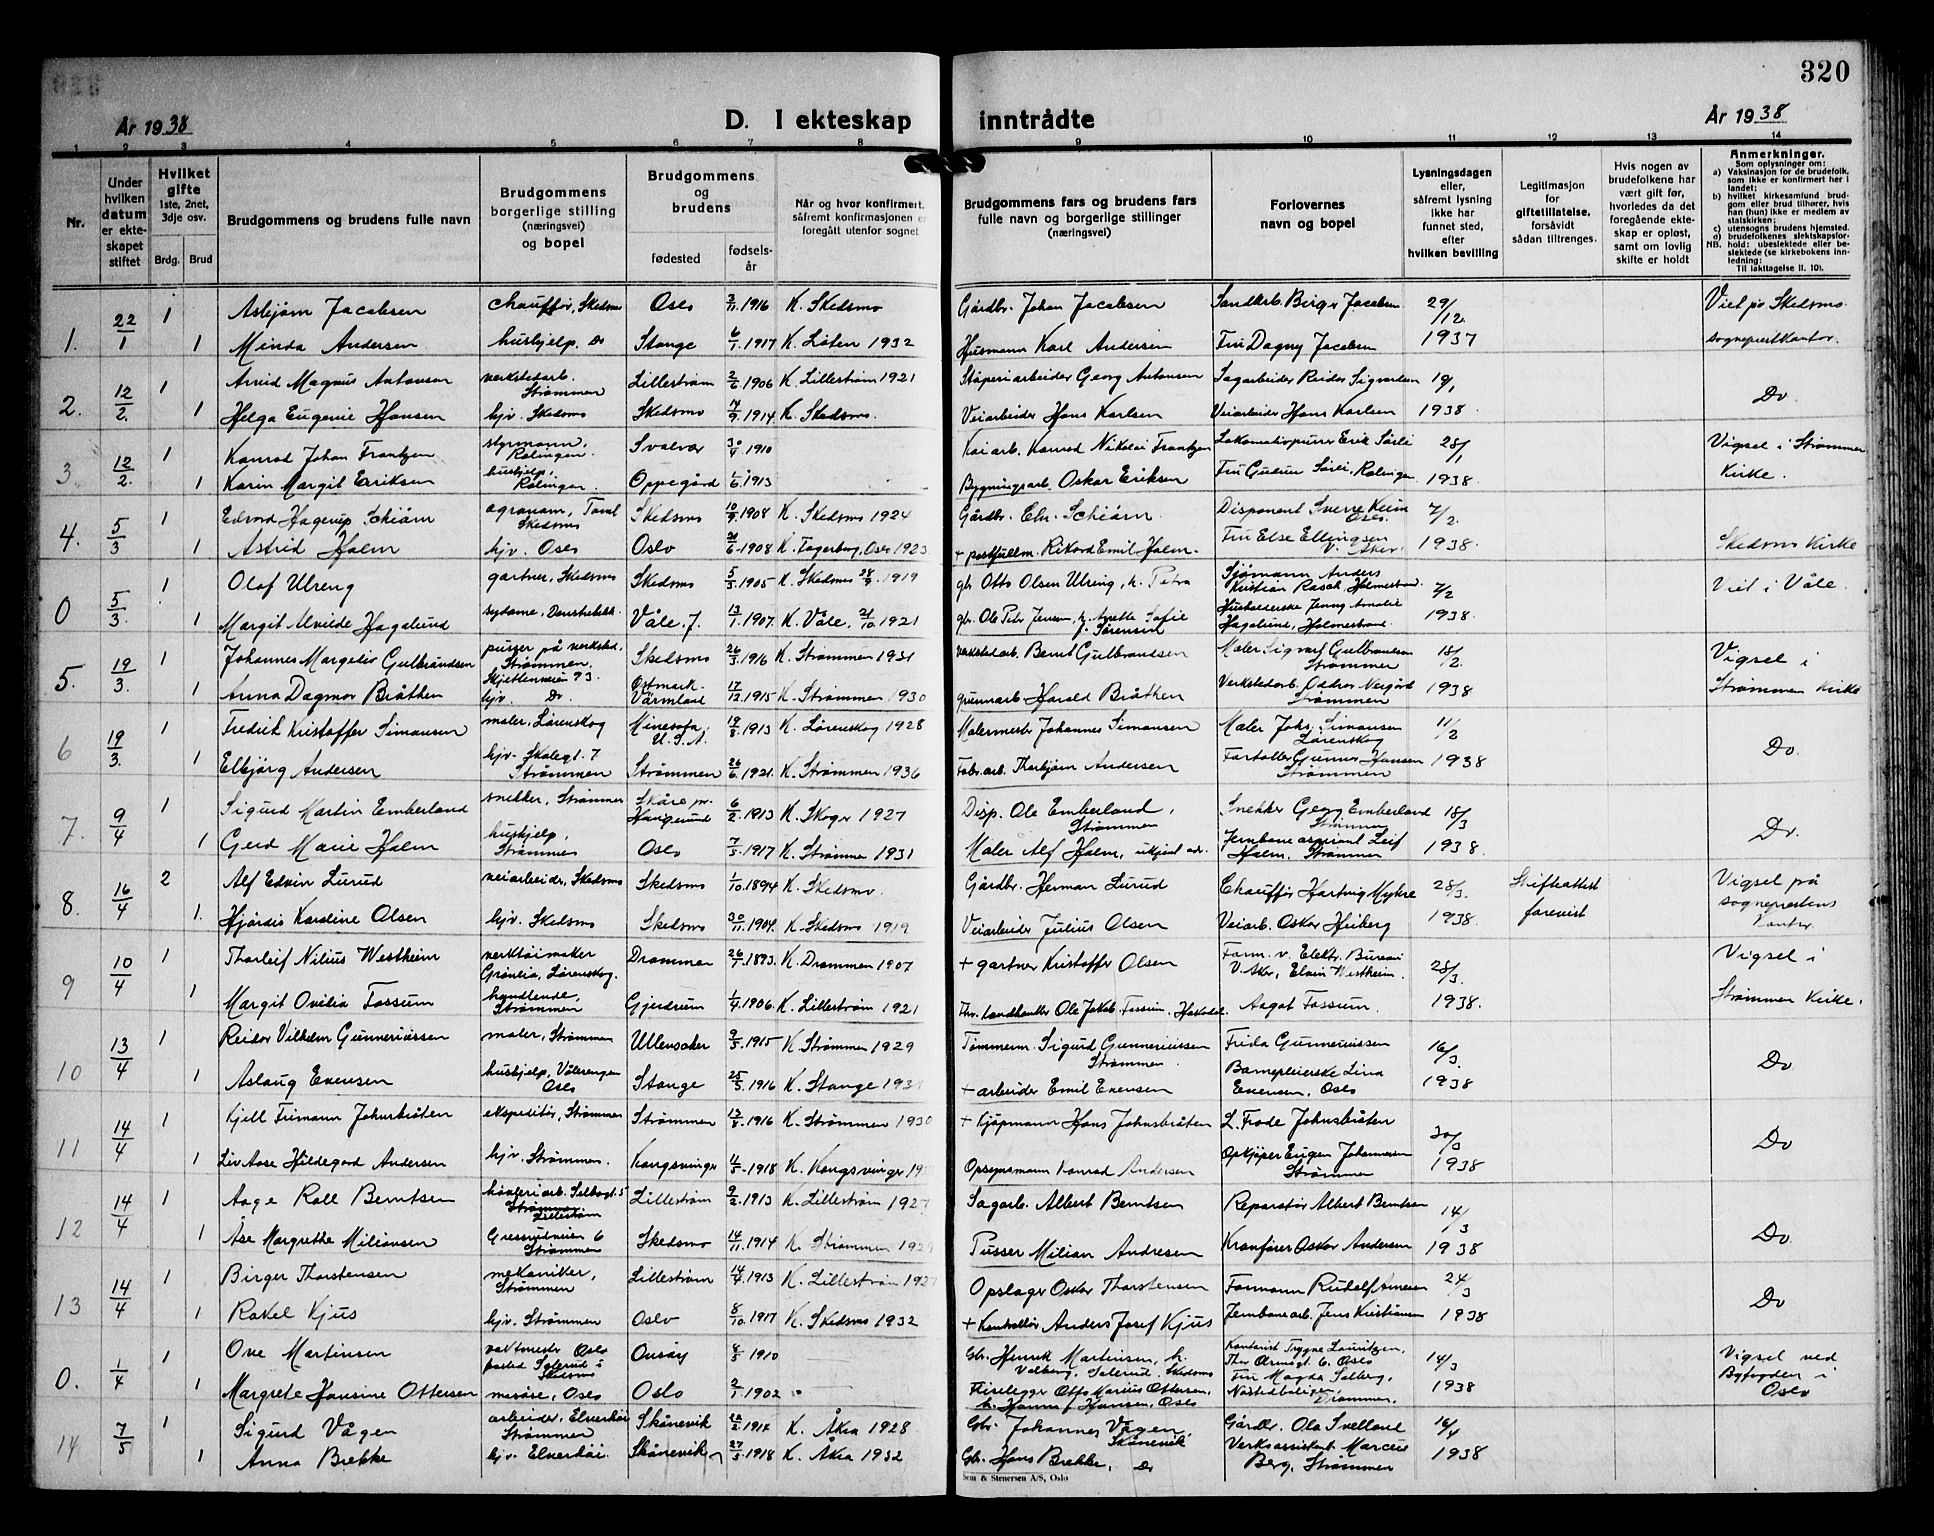 320
År 1938
D. I ekteskap inntrådte
År 1938
1 2 3 4 5 6 7 8 9 10 11 12 13 14
Nr.
Under hvilken datum er ekteskapet stiftet
Hvilket gifte 1ste, 2net, 3dje osv.
Brdg. Brud
Brudgommens og brudens fulle navn
Brudgommens borgerlige stilling (næringsvei) og bopel
Brudgommens og brudens
fødested
fødselsår
Når og hvor konfirmert, såfremt konfirmasjonen er foregått utenfor sognet
Brudgommens fars og brudens fars fulle navn og borgerlige stillinger (næringsvei)
Forlovernes navn og bopel
Lysningsdagen eller, såfremt lysning ikke har funnet sted, efter hvilken bevilling
Legitimasjon for giftetillatelse, forsåvidt sådan tiltrenges.
Hvis nogen av brudefolkene har vært gift før, hvorledes da det foregående ekteskap er opløst, samt om lovlig skifte er holdt
Anmerkninger.
Som oplysninger om:
a) Vaksinasjon for de brudefolk, som ikke er konfirmert her i landet;
b) hvilket kirkesamfund brudgom eller brud tilhører, hvis han (hun) ikke er medlem av statskirken;
c) utensogns brudens hjemsted.
d) brudefolkenes slektskapsforhold: ubeslektede eller beslektede (se kirkebokens innledning:
NB.
Til iakttagelse II. 10).
1. 22/1 1 Asbjørn Jacobsen chauffør, Skedsmo Oslo 1916 K. Skedsmo Gårdbr. Johan Jacobsen Sandkrb. Birger Jacobsen 29/12 Viet på Skedsmo
1 Minda Andersen hushjelp. Do Stange 6/1 1917 K. Løten 1932 Husmann Karl Andersen Fru Dagny Jacobsen 1937 sogneprestkontor.
2. 12/2. 1 Arvid Magnus Antonsen verkstedarb. Strømmen Lillestrøm 2/6 1906 K. Lillestrøm 1921 Støperiarbeider Georg Antonsen Sagarbeider Reidar Sigvartsen 19/1 Do.
1 Helga Eugenie Hansen hjv. Skedsmo Skedsmo 17/9 1914 K. Skedsmo. Veiarbeider Hans Karlsen Veiarbeider Hans Karlsen 1938.
3 12/2. 1 Konrad Johan Frantzen styrmann, Rælingen. Svolvær 30/4 1910 Kaiarb. Konrad Nikolai Frantzen Lokomotivpusser Erik Sørli 28/1 Vigsel i Strømmen
1 Karin Margit Eriksen hushjelp, Rælingen Oppegård 1/6 1913 Bygningsarb. Oskar Eriksen Fru Gudrun Sørli, Rælingen 1938. Kirke.
4. 5/3 1 Edvard Hagerup Schiørn agronom, Skedsmo Skedsmo 10/9 1908 K. Skedsmo 1924 Gårdbr. Chr. Schiørn. Disponent Sverre Keim Oslo. 7/2.
1 Astrid Holm hjv. Oslo Oslo 1908 K. Fagerborg, Oslo 1923 + postfullm. Rikard Emil Holm. Fru Else Ellingsen V. Aker. 1938. Skedsmo Kirke
0 5/3. 1 Olaf Ulreng gartner, Skedsmo Skedsmo 5/5 1905 K. Skedsmo 28/9 1919 gb. Otto Olsen Ulreng, h. Petra Sjømann Anders Kristian Rasch, Holmestrand. 7/2 Viet i Våle.
1 Margit Alvilde Hagelund sydame, Våle. J. 13/1 1907. K. Våle, 21/10 1921 gb. Ole Petr Jensen, h. Anette Sofie f. Sørensen Husholderske Jenny Amalie Hagelund, Holmestrand. 1938.
5. 19/3. 1 Johannes Margelio Gulbrandsen pusser på verksted, Strømmen. Skjettenveien 93. Skedsmo 26/3 1916 K. Strømmen 1931 verkstedarb. Bernt Gulbrandsen Maler Sigvart Gulbrandsen Strømmen 18/2. Vigsel i
1 Anna Dagmar Bråthen hjv. Do. Østmark. Värmland 17/12 1915 K. Strømmen 1930 Harald Bråthen Verkstedarb. Oddvar Nergård Strømmen 1938 Strømmen Kirke
6 19/3. 1 Fredrik Kristoffer Simonsen maler, Lørenskog Minesota, U.S.A. 19/8 1913 K. Lørenskog 1928 Malermester Johannes Simonsen Maler Johs. Simonsen Lørenskog 11/2 Do.
1 Elbjørg Andersen hjv. Skolegt. 7 Strømmen Strømmen 26/6 1921. K. Strømmen 1936 Fabr.arb. Thorbjørn Andersen Fortoller Gunnar Hansen Strømmen 1938
7. 9/4 1 Sigurd Martin Emberland snekker, Strømmen 6/2 1913 K. Skoger 1927 Disp. Ole Emberland, Strømmen Snekker Georg Emberland Strømmen 18/3 Do.
1 Gerd Marie Holm hushjelp, Strømmen Oslo 7/5 1917 K. Strømmen 1931 Maler Alf Holm, ukjent adr. Jernbaneaspirant Leif Holm, Strømmen 1938.
8. 16/4 2 Alf Edvin Lurud veiarbeider, Skedsmo Skedsmo 1/10 1894 K. Skedsmo. Gårdbr. Herman Lurud Chauffør Hartvig Myhre 28/3. Skifteattest Vigsel på sogneprestens
1. Hjørdis Karoline Olsen hjv. Skedsmo Skedsmo 30/11 1904. K. Skedsmo 1919 Veiarbeider Julius Olsen Veiarb. Oskar Heiberg 1938. forevist kontor.
9 10/4 1 Thorleif Nilius Westheim verktøimaker Grønlia, Lørenskog. Drammen 26/7 1893. K. Drammen 1907 + gartner Kristoffer Olsen Form. v. Elektr. Bureau V. Aker, Elvin Westheim. 28/3. Vigsel i
1 Margit Ovilia Fossum handlende, Strømmen Gjerdrum 1/4 1906. K. Lillestrøm 1921 fhv. landhandler Ole Jakob Fossum, Hakadal. Aagot Fossum. 1938. Strømmen Kirke.
10 13/4 1 Reidar Vilhelm Gunneriussen maler, Strømmen Ullensaker 1915 K. Strømmen 1929 Tømmerm. Sigurd Gunneriussen Strømmen. Frida Gunneriussen 16/3. Do
1 Aslaug Evensen hushjelp, Vålerengen Oslo Stange 25/5 1916 K. Stange 193 + arbeider Emil Evensen Barnepleierske Lina Evensen, Oslo 1938
11 14/4 1 Kjell Freimann Johnsbråten ekspeditør, Strømmen Strømmen 13/8 1916 K. Strømmen 1930 + Kjøpmann Hans Johnsbråten L. Frode Johnsbråten 30/3 Do
1 Liv Aase Hildegard Andersen hjv. Strømmen. Kongsvinger 1918 K. Kongsvinger 19 Opsynsmann Konrad Andersen Opkjøper Eugen Johannesen Strømmen 1938
12 14/4 1 Aage Roll Berntsen høvleriarb. Solbogt. 5 Strømmen Lillestrøm Lillestrøm 9/2 1913 K. Lillestrøm 1927 Sagarb. Albert Berntsen Reparatør Albert Berntsen 14/3 Do
1 Åse Margrethe Miliansen 6 Strømmen Skedsmo 14/11 1914 K. Strømmen 1929 Pusser Milian Andresen Kranfører Oskar Andersen 1938
13 14/4 1 Birger Thorstensen mekaniker, Strømmen Lillestrøm 14/4 1913 K. Lillestrøm 1927 Opslager Oskar Thorstensen Formann Rudolf Arnesen 24/3 Do
1 Rakel Kjus hjv. Strømmen Oslo 8/10 1917 K. Skedsmo 1932 + Kontrollør Anders Josef Kjus Jernbanearb. Jens Kristiansen 1938
0. 1/4 1 Ove Martinsen vaktmester Oslo Skedsmo Onsøy 8/5 1910 Gb. Henrik Martinsen, h. Valborg, Skedsmo Kontorist Trygve Lauritzen, Thv. Olsensgt. 6. Oslo 14/3 Vigsel ved
1 Margrete Hansine Ottersen Oslo Oslo 2/1 1902 Fliselegger Otto Marius Ottersen, h. Hanna f. Hansen, Oslo Fru Magda Solberg, Drammen. 1938 Byfogden i Oslo
14 7/5 1 Sigurd Vågen arbeider, Elverhøi Strømmen Skånevik 1914 K. Åkra 1928 Gbr. Johannes Vågen, Skånevik Gårdbr. Ola Svelland 16/4
1 Anna Brekke hjv. Elverhøi. Skånevik 27/5 1918 K. Åkra 1932 Gb. Hans Brekke, Do Verksassistent Marcus Berg, Strømmen 1938
Sem & Stenersen A/S, Oslo